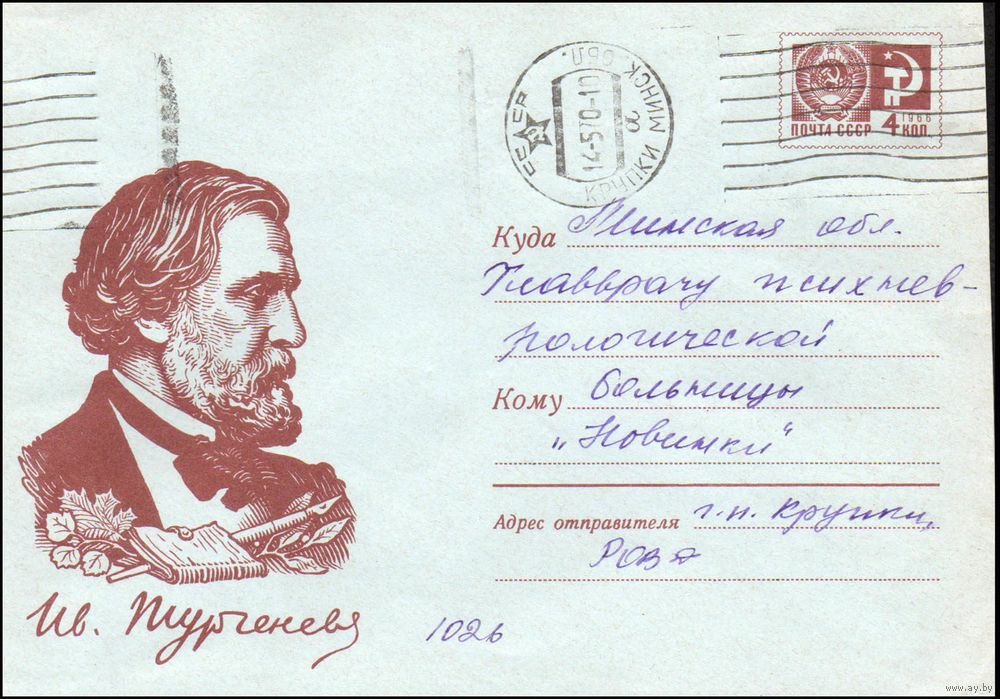 СССР
КРУПКИ МИНСК. ОБЛ.
14-5 70-10
а
1966
4 КОП
ПОЧТА СССР
Куда Минская обл.
Главврачу психнев-
рологической
Кому больницы
„Новинки“
Адрес отправителя г.п. Крупки,
РОВД
Ив. Тургенев
102б
www.ay.by